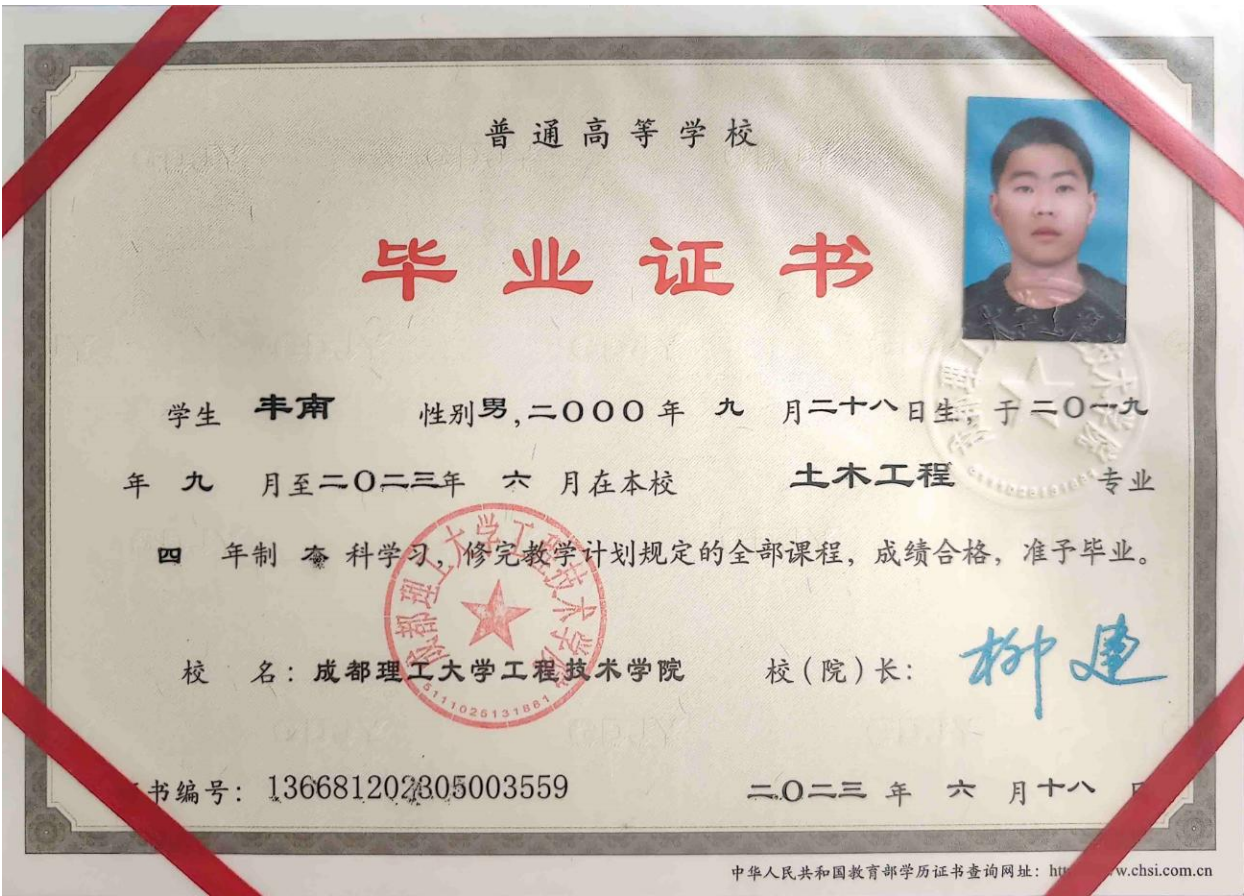 普通高等学校
毕业证书
学生 丰南 性别男,二〇〇〇年 九 月二十八日生,于二〇一九
年 九 月至二〇二三年 六 月在本校 土木工程 专业
四 年制 本 科学习,修完教学计划规定的全部课程,成绩合格,准予毕业。
成都理工大学工程技术学院
5111025131881
校 名:成都理工大学工程技术学院 校(院)长: 柳建
书编号: 136681202305003559 二〇二三 年 六 月十八
中华人民共和国教育部学历证书查询网址: w.chsi.com.cn